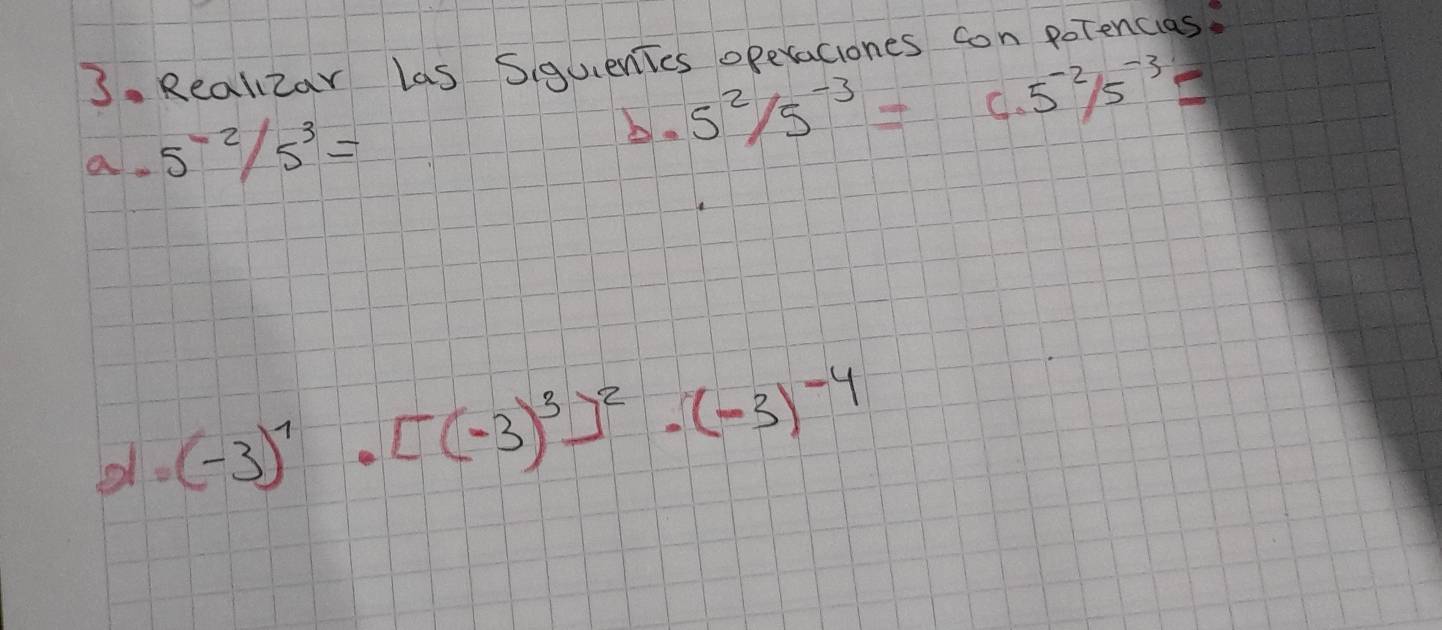 3. Realizar las siguientes operaciones con potencias:
a. 5⁻²/5³ = b. 5²/5⁻³ = c. 5⁻²/5⁻³ =
d. (-3)¹ . [(-3)³]² . (-3)⁻⁴